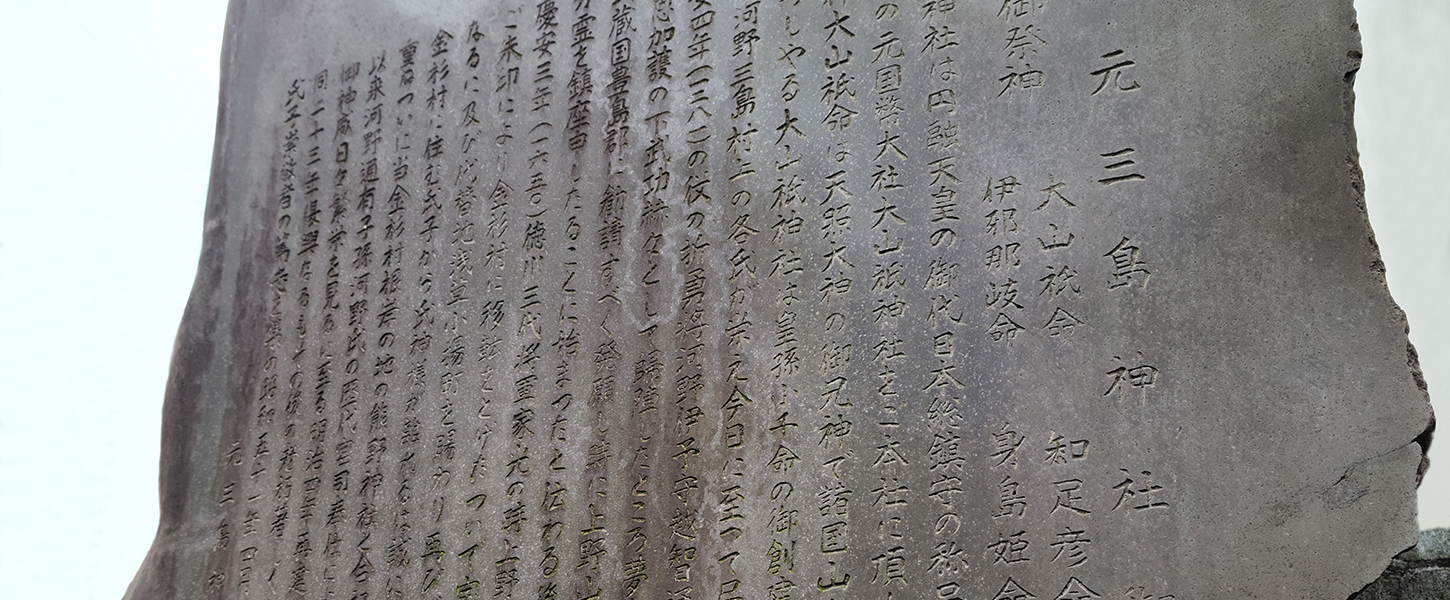 元三島神社
御祭神 大山祇命 知足彦命
伊邪那岐命 身島姫命
神社は円融天皇の御代日本総鎮守の称号
の元国幣大社大山祇神社をご本社に頂
大山祇命は天照大神の御兄神で諸国山
しやる大山祇神社は皇孫小千命の御創建
河野三島村上の各氏が栄え今日に至って
四年(一二八一)の役の折勇将河野伊予守越智通
加護の下武功赫々として帰陣したところ夢
蔵国豊島郡に勧請すべく発願し時に上野
分霊を鎮座申したることに始まったと伝わる
慶安三年(一六五〇)徳川三代将軍家光の時上野
ご朱印により金杉村に移転をとげたついで
なるに及び代替地浅草小揚町を賜わり再び
金杉村に住む氏子から氏神様が
重ねついに当金杉村根岸の地の熊野神社と合
以来河野通有子孫河野氏の歴代宮司奉仕
御神威日々繁栄を見るに至る明治四年再建
同二十三年
昭和五十一年四月
元三島神